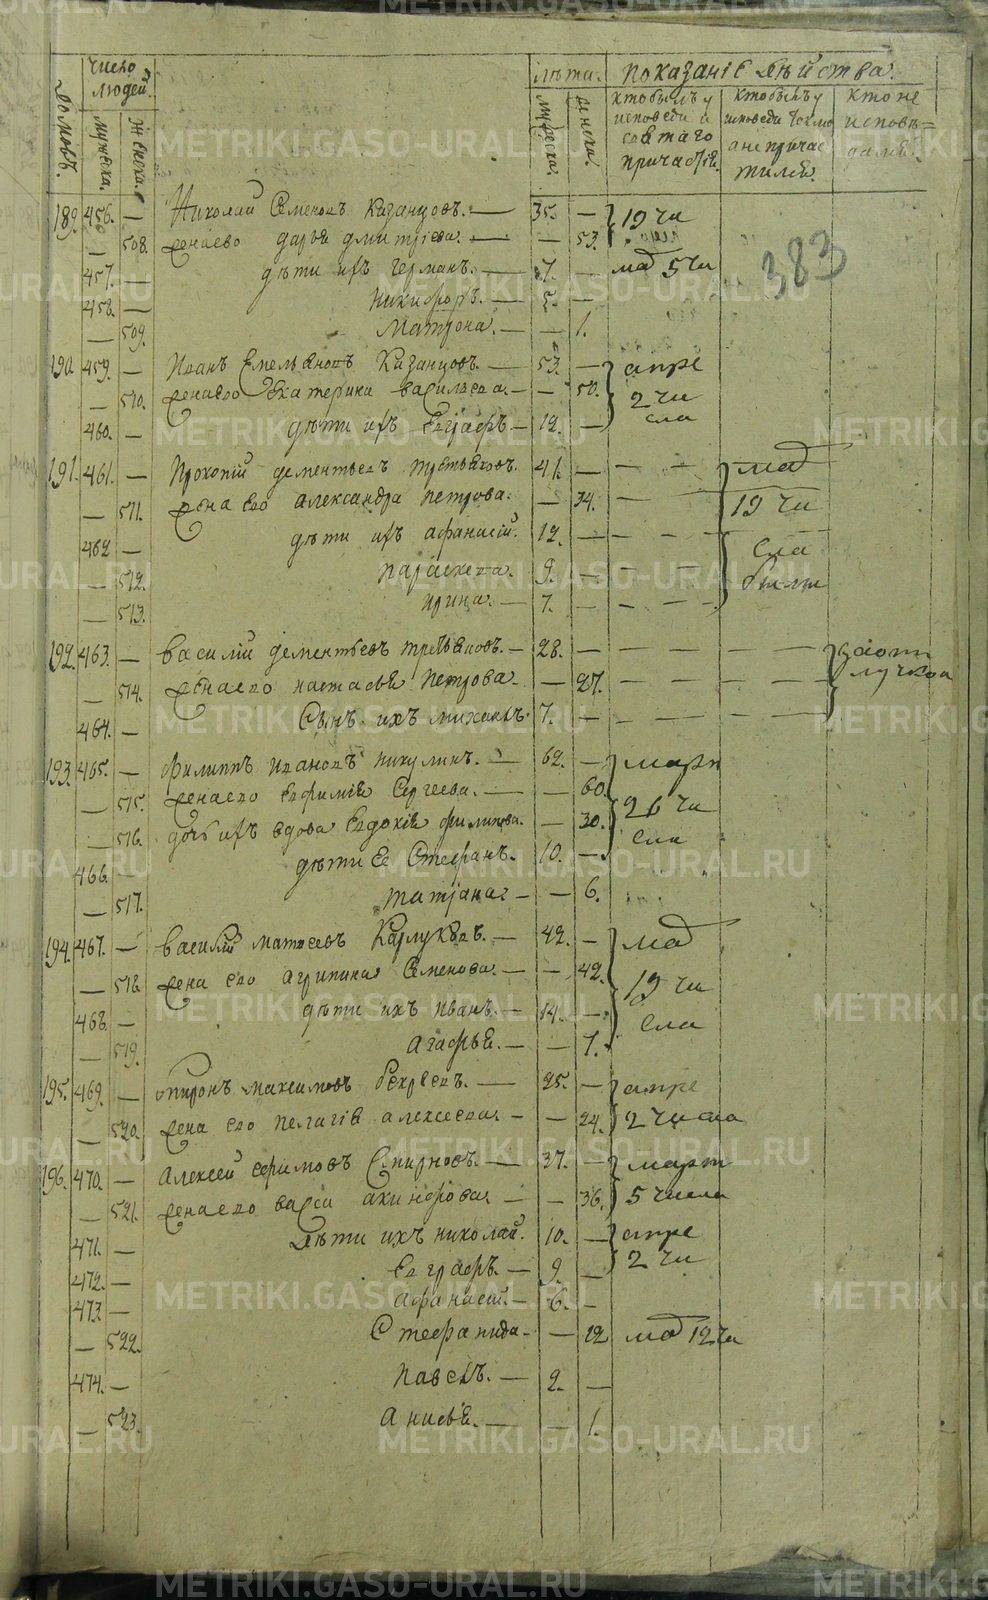 число людей. лѣта. показанiе дѣйства.
домовъ. мужеска. женска. мужеска. женска. кто былъ у исповеди и святаго причастiя. кто былъ у исповеди токмо а не причастился. кто не исповѣдался.
383
189. 456. — Николай Семеновъ Казанцовъ. — 35. — 19 чи
— 508. жена ево дарья дмитрiева. — — 53.
457. — дѣти ихъ Герман. — 7. — мая 5 чи
458. — Никифоръ. — 5. —
— 509. Матрона. — — 1.
190. 459. — Иванъ Емельяновъ Казанцовъ. — 53. — апре
— 510. жена ево Екатерина васильева. — — 50. 2 чи
460. — дѣти ихъ Евграфъ — 12. — сла
191. 461. — Прокопiй дементьевъ третьяковъ. 41. — — — мая
— 511. жена ево александра петрова. — 34. — 19 чи
462 — дѣти ихъ афанасiй. 12. — — — сла
— 512. параскева. 9. — — — были
— 513. ирина. — 7. — — —
192. 463. — василiй дементьевъ третьяковъ. — 28. — — — — — за отлучкою
— 514. жена ево настасья петрова. — 27. — — — —
464. — Сынъ ихъ михаилъ. 7. — — — — —
193. 465. — филиппъ ивановъ никулинъ. — 62. — март
— 515. жена ево ефимiя Сергеева. — — 60. 26 чи
— 516. дочь ихъ вдова евдокiя филипова. — 30. сла
466. — дѣти ее Стефанъ. 10. —
— 517. татiана — — 6.
194. 467. — василiй матвеевъ — 42. — мая
— 518. жена ево агрипина Семенова. — — 42. 19 чи
468. — дѣти ихъ иванъ. — 14. — сла
— 519. агафья. — — 7.
195. 469. — максимовъ — 25. — апре
— 520. жена ево пелагiя алексеева. — — 24. 2 числа
196. 470. — алексей ефимовъ Смирновъ. — 37. — март
— 521. жена ево васса акинфова — — 36. 5 числа
471. — дѣти ихъ николай. 10. — апре
472. — Евграфъ. — 9. — 2 чи
473. — афанасей. — 6. —
— 522. Стефанида. — — 12 мая 12 чи
474. — павелъ. — 2. —
— 523. анисья. — — 1.
METRIKI.GASO-URAL.RU